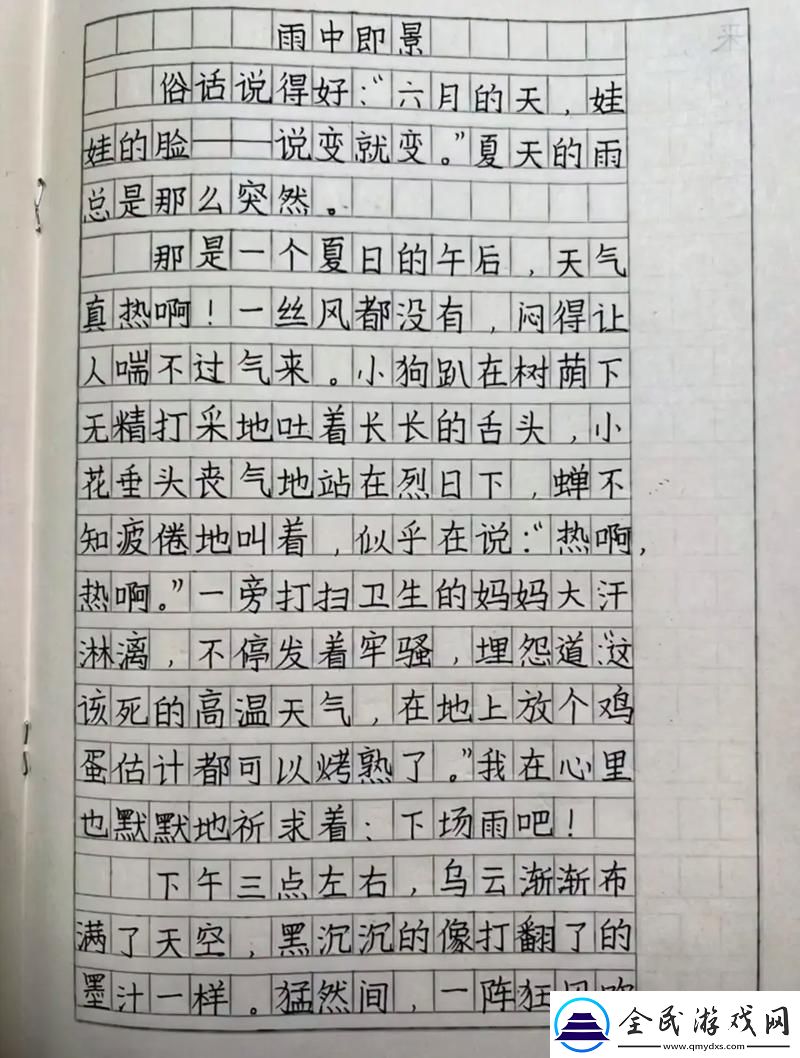 雨中即景
俗话说得好:“六月的天,娃
娃的脸——说变就变。”夏天的雨
总是那么突然。
那是一个夏日的午后,天气
真热啊!一丝风都没有,闷得让
人喘不过气来。小狗趴在树荫下
无精打采地吐着长长的舌头,小
花垂头丧气地站在烈日下,蝉不
知疲倦地叫着,似乎在说:“热啊,
热啊。”一旁打扫卫生的妈妈大汗
淋漓,不停发着牢骚,埋怨道:“这
该死的高温天气,在地上放个鸡
蛋估计都可以烤熟了。”我在心里
也默默地祈求着:下场雨吧!
下午三点左右,乌云渐渐布
满了天空,黑沉沉的像打翻了的
墨汁一样。猛然间,一阵狂
全民游戏网
www.qmydxs.com